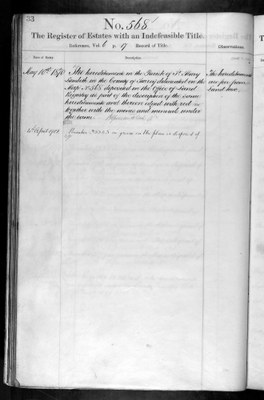 33
No. 568
The Register of Estates with an Indefeasible Title.
Reference, Vol. 6 p. 17 Record of Title.
Description.
Observations.
May 10th 1870 The hereditaments in the Parish of St. Mary
Lambeth in the County of Surrey delineated on the
Map No. 568 deposited in the Office of Land
Registry as part of the description of the same
hereditaments and thereon edged with red
together with the mines and minerals under
the same.
The hereditaments
are free from
Land tax.